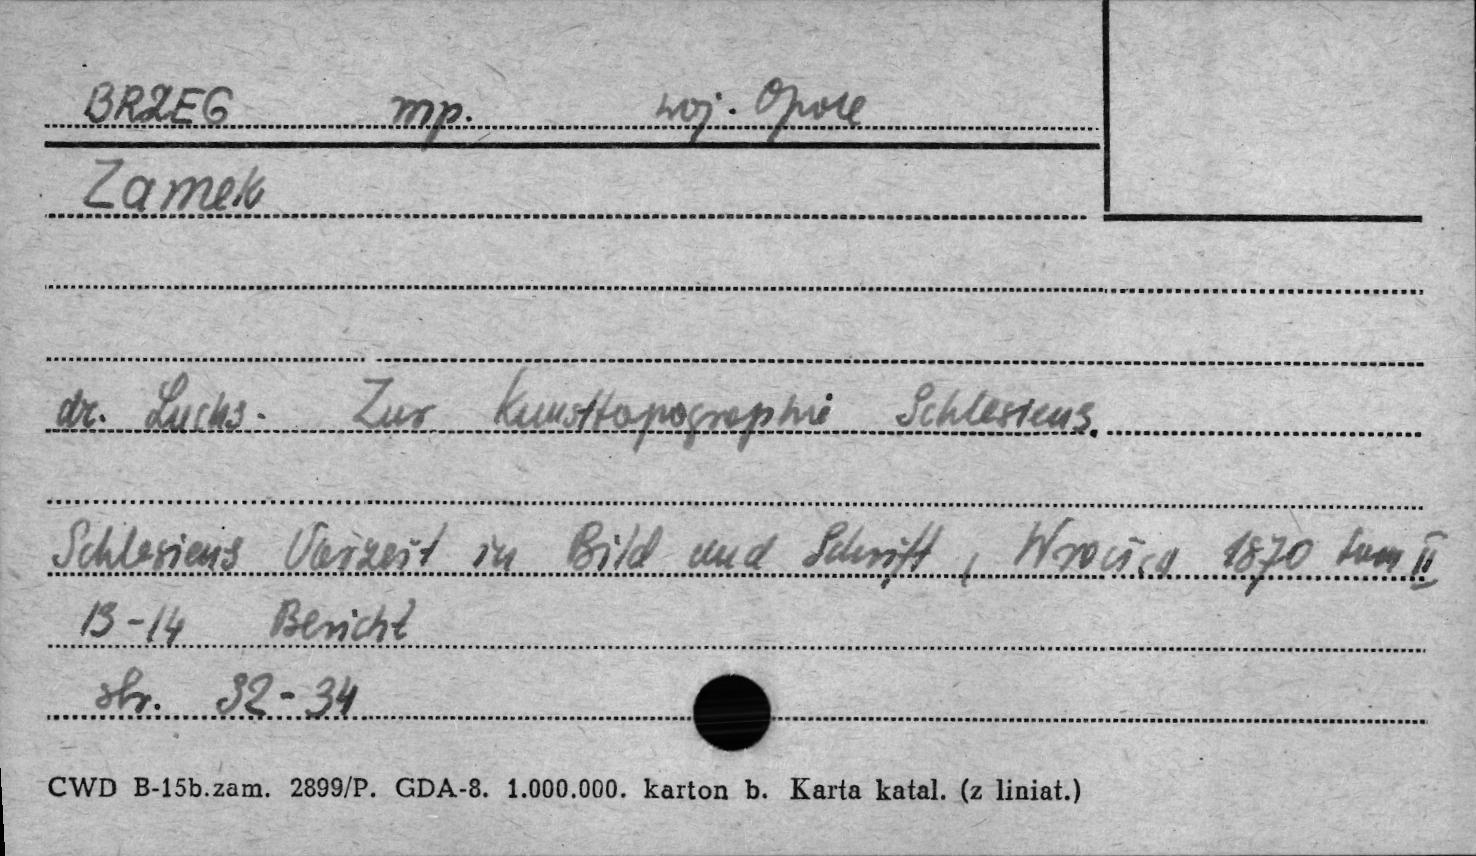 BRZEG mp. woj. Opole
Zamek
dr. Luchs. Zur Kunsttopographie Schlesiens.
Schlesiens Vorzeit in Bild und Schrift, Wrocław 1870 tom II
13-14 Bericht
str. 32-34
CWD B-15b.zam. 2899/P. GDA-8. 1.000.000. karton b. Karta katal. (z liniat.)